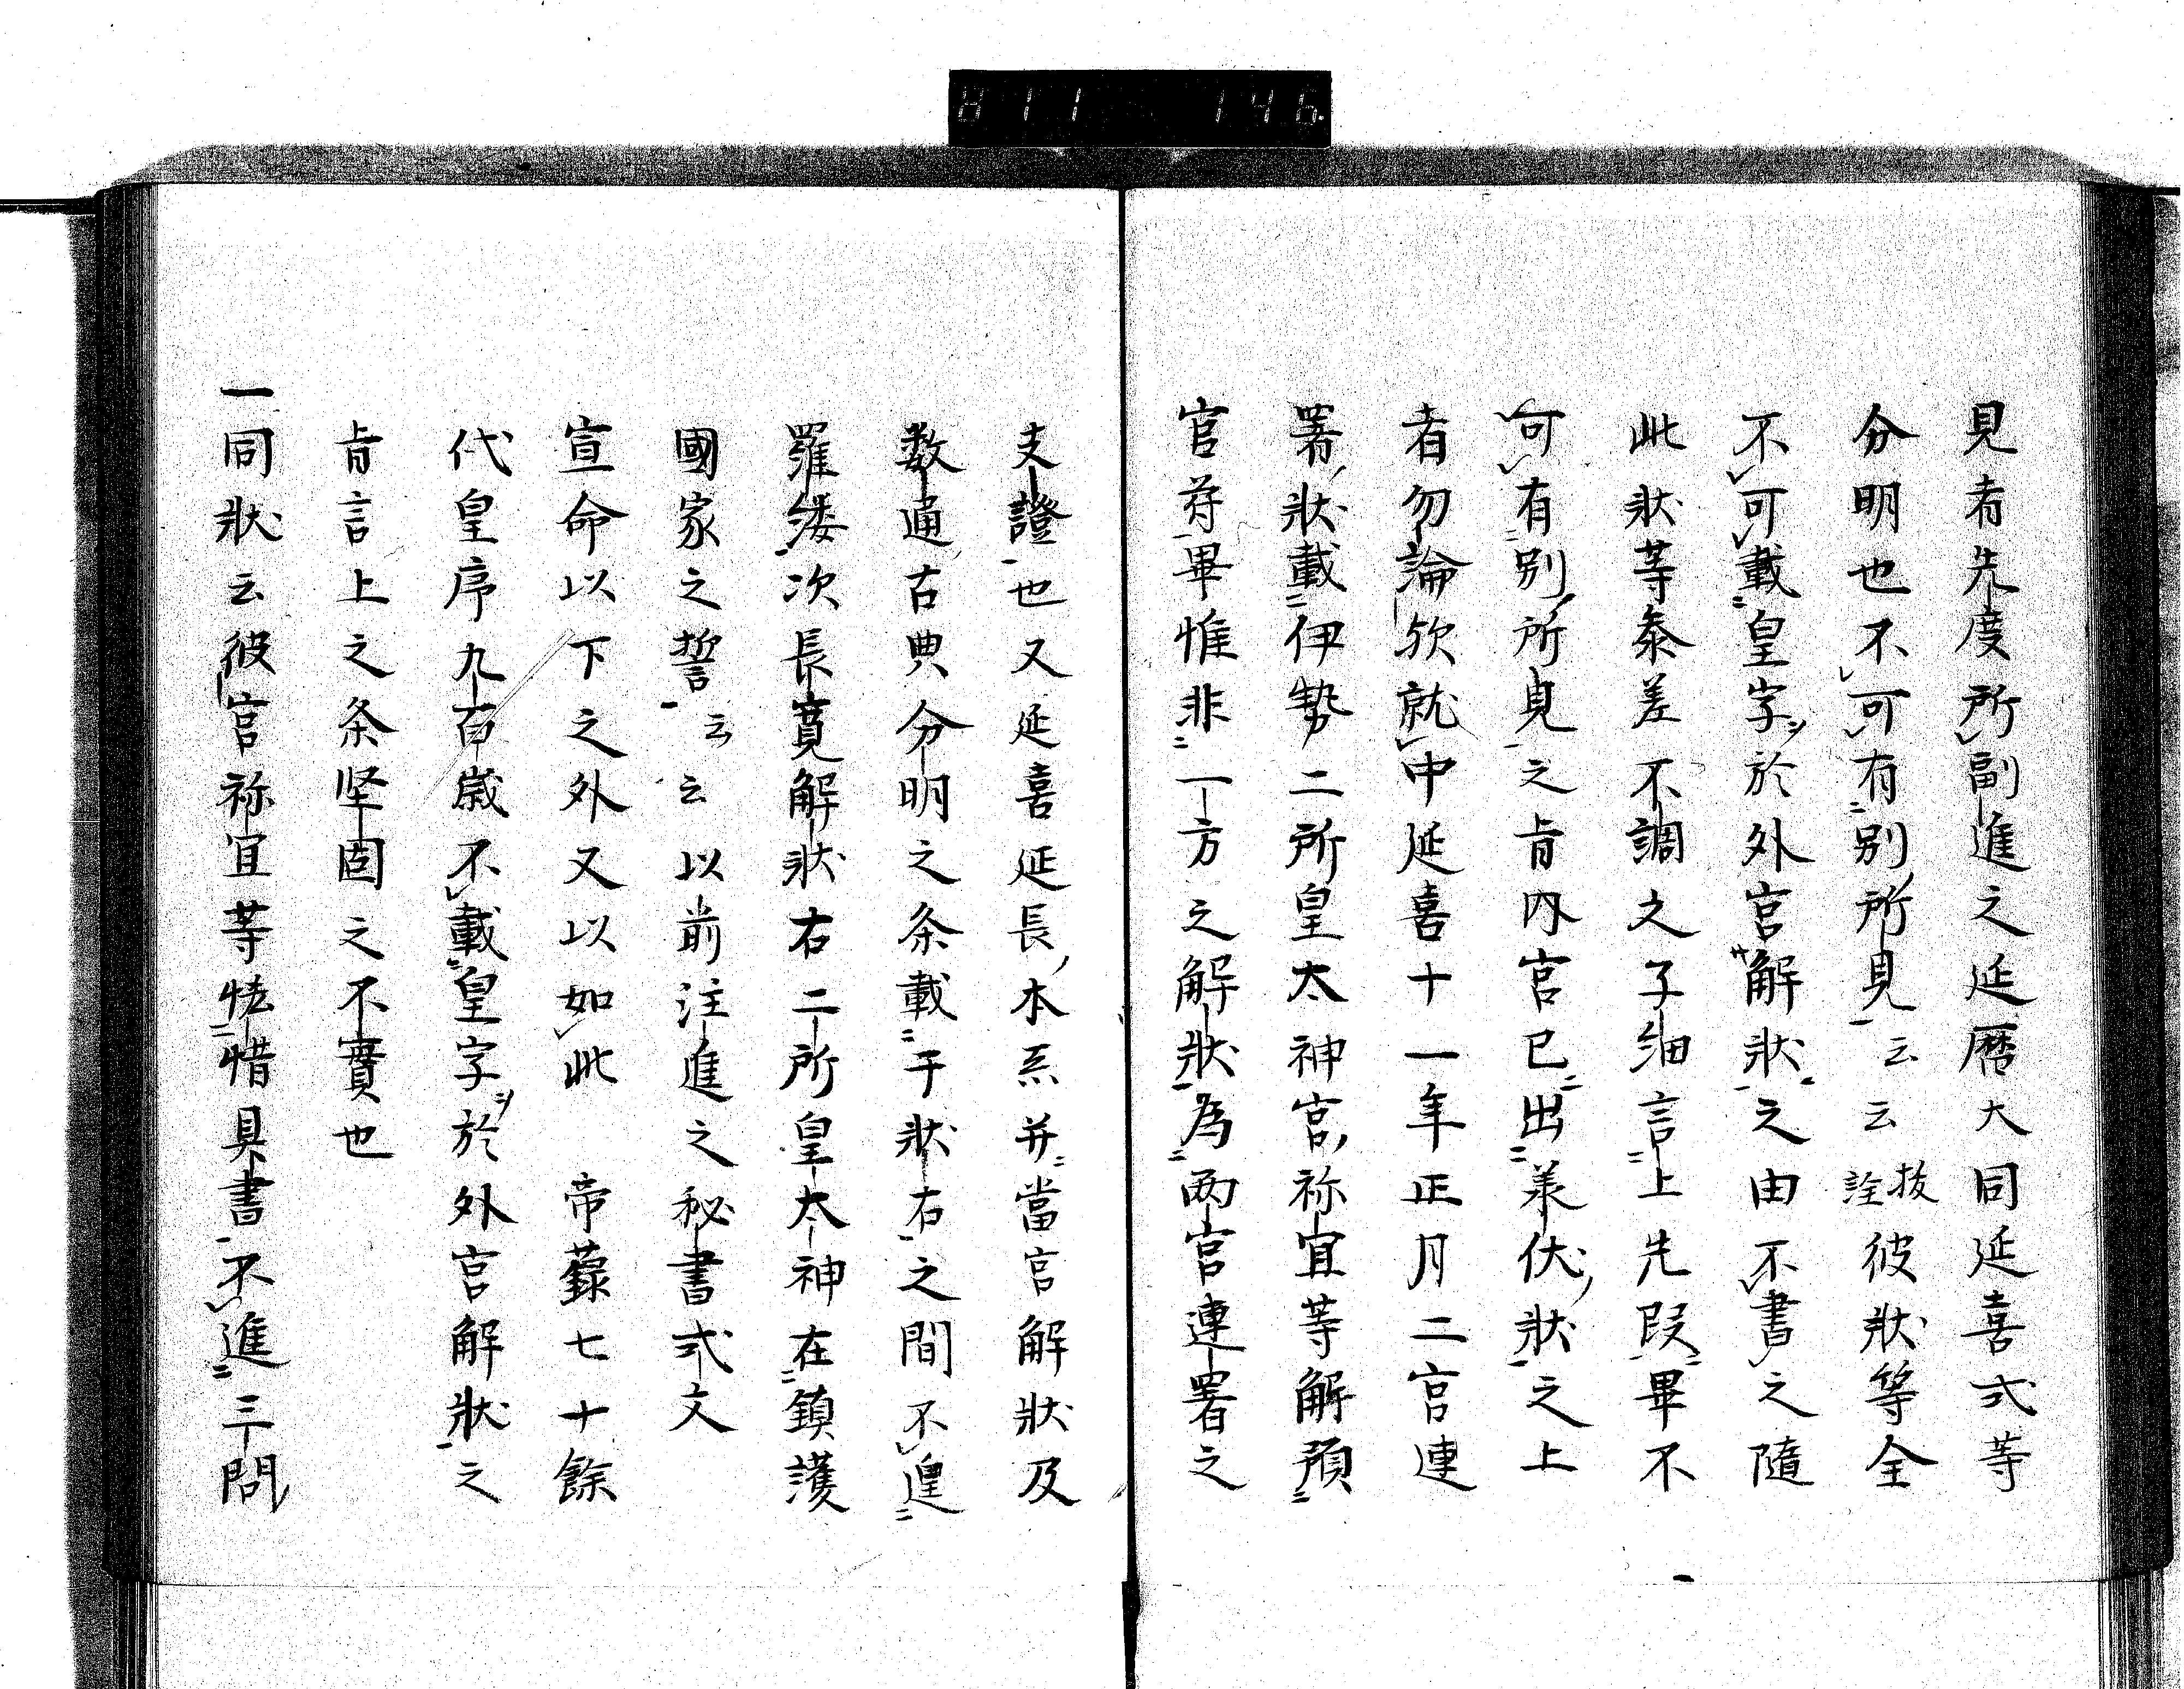 811 146.
見者先度所副進之延曆大同延喜式等
分明也不可有別所見云云抜詮彼狀等全
不可載皇字於外宮解狀之由不書之隨
此狀等参差不調之子細言上先段畢不
可有別所見之旨内宮已出承伏狀之上
者勿論欤就中延喜十一年正月二宮連
署狀載伊勢二所皇太神宮祢宜等解預
官苻畢惟非一方之解狀為兩宮連署之
支證也又延喜延長本系并當宮解狀及
数通古典分明之条載于狀右之間不遑
羅縷次長寛解狀右二所皇太神在鎮護
國家之誓云云以前注進之秘書式文
宣命以下之外又以如此 帝蘶七十餘
代皇序九百歳不載皇字於外宮解狀之
旨言上之条坚固之不實也
一同狀云彼宮祢宜等恡惜具書不進三問